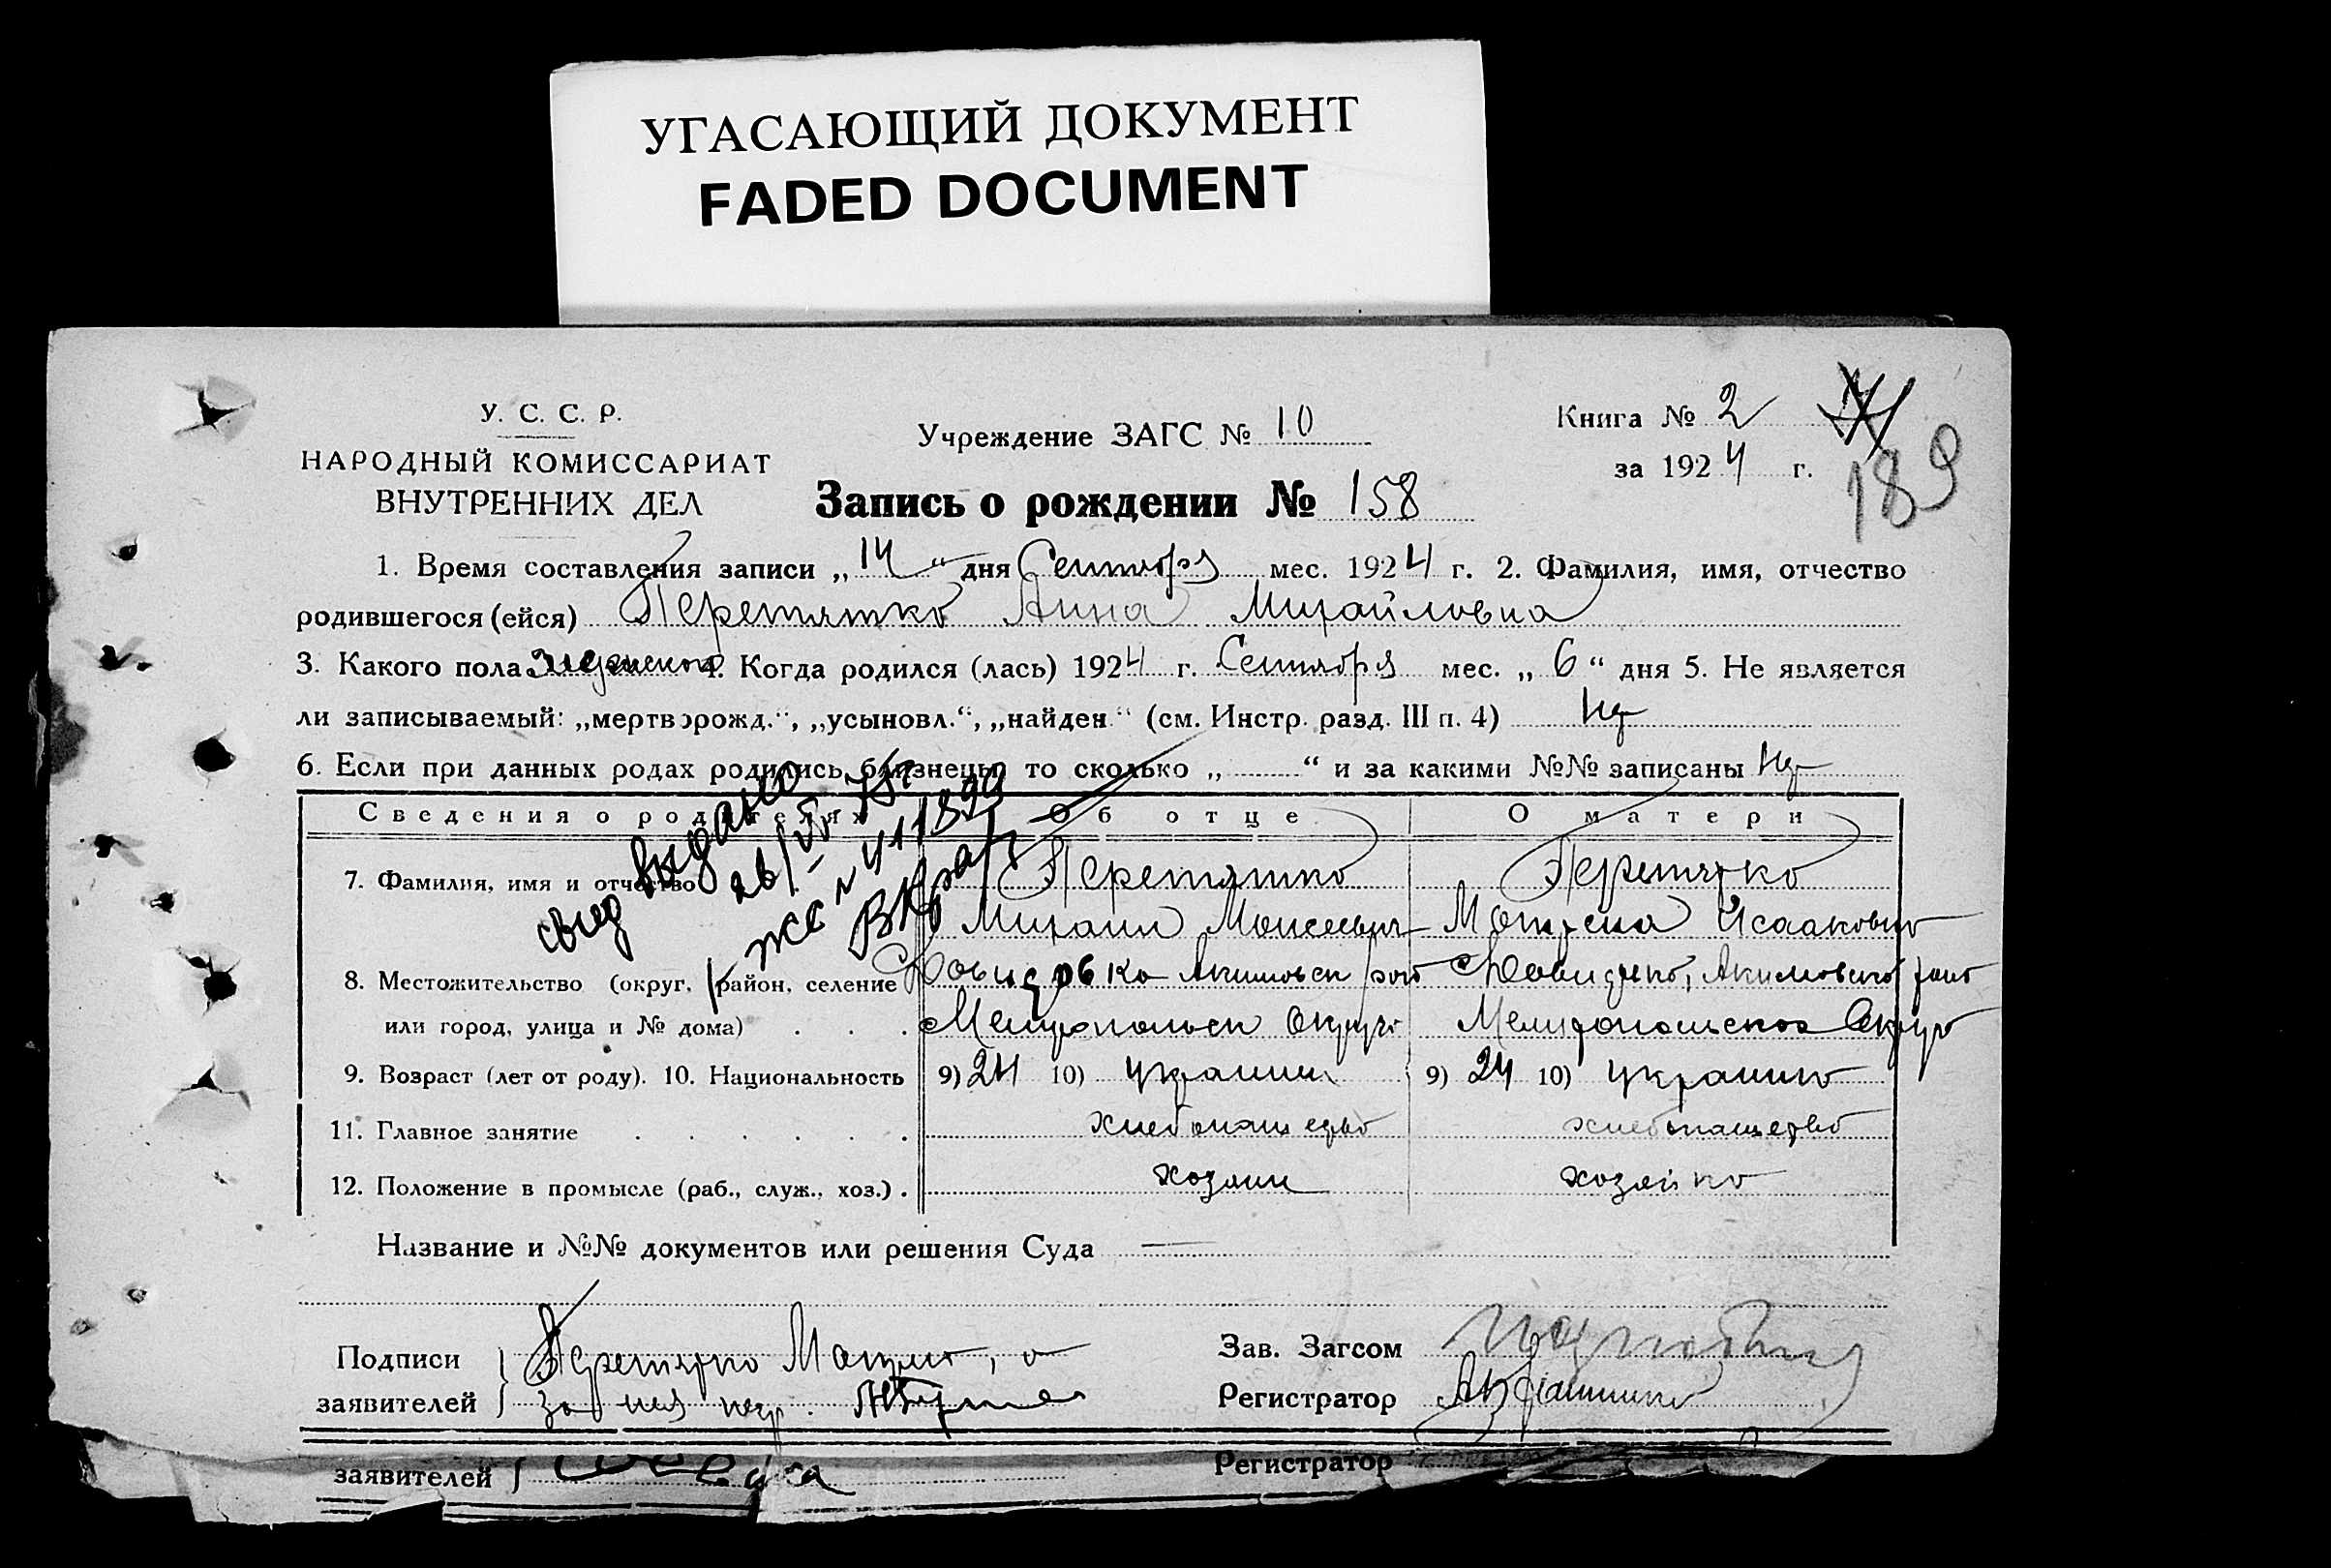 УГАСАЮЩИЙ ДОКУМЕНТ
FADED DOCUMENT
У. С. С. Р.
НАРОДНЫЙ КОМИССАРИАТ
ВНУТРЕННИХ ДЕЛ
Учреждение ЗАГС № 10
Книга № 2
за 1924 г.
189
Запись о рождении № 158
1. Время составления записи „14“ дня Сентября мес. 1924 г. 2. Фамилия, имя, отчество
родившегося (ейся) Перетятко Анна Михайловна
3. Какого пола женского 4. Когда родился (лась) 1924 г. Сентября мес. „6“ дня 5. Не является
ли записываемый: „мертворожд.“, „усыновл.“, „найден.“ (см. Инстр. разд. III п. 4) Нет
6. Если при данных родах родились близнецы, то сколько „ “ и за какими №№ записаны Нет
Сведения о родителях Об отце О матери
свид выдано
7. Фамилия, имя и отчество Перетятко Перетятко
Михаил Моисеевич Мотрена Исааковна
8. Местожительство (округ, район, селение Давидовка Акимовск Давидовка, Акимовского
или город, улица и № дома) Мелитопольск Округа Мелитопольского Округа
9. Возраст (лет от роду). 10. Национальность 9) 24 10) украинец 9) 24 10) украинка
11. Главное занятие хлебопашество хлебопашество
12. Положение в промысле (раб., служ., хоз.) хозяин хозяйка
Название и №№ документов или решения Суда —
Подписи заявителей Перетятко
за нея
Зав. Загсом
Регистратор
заявителей
Регистратор